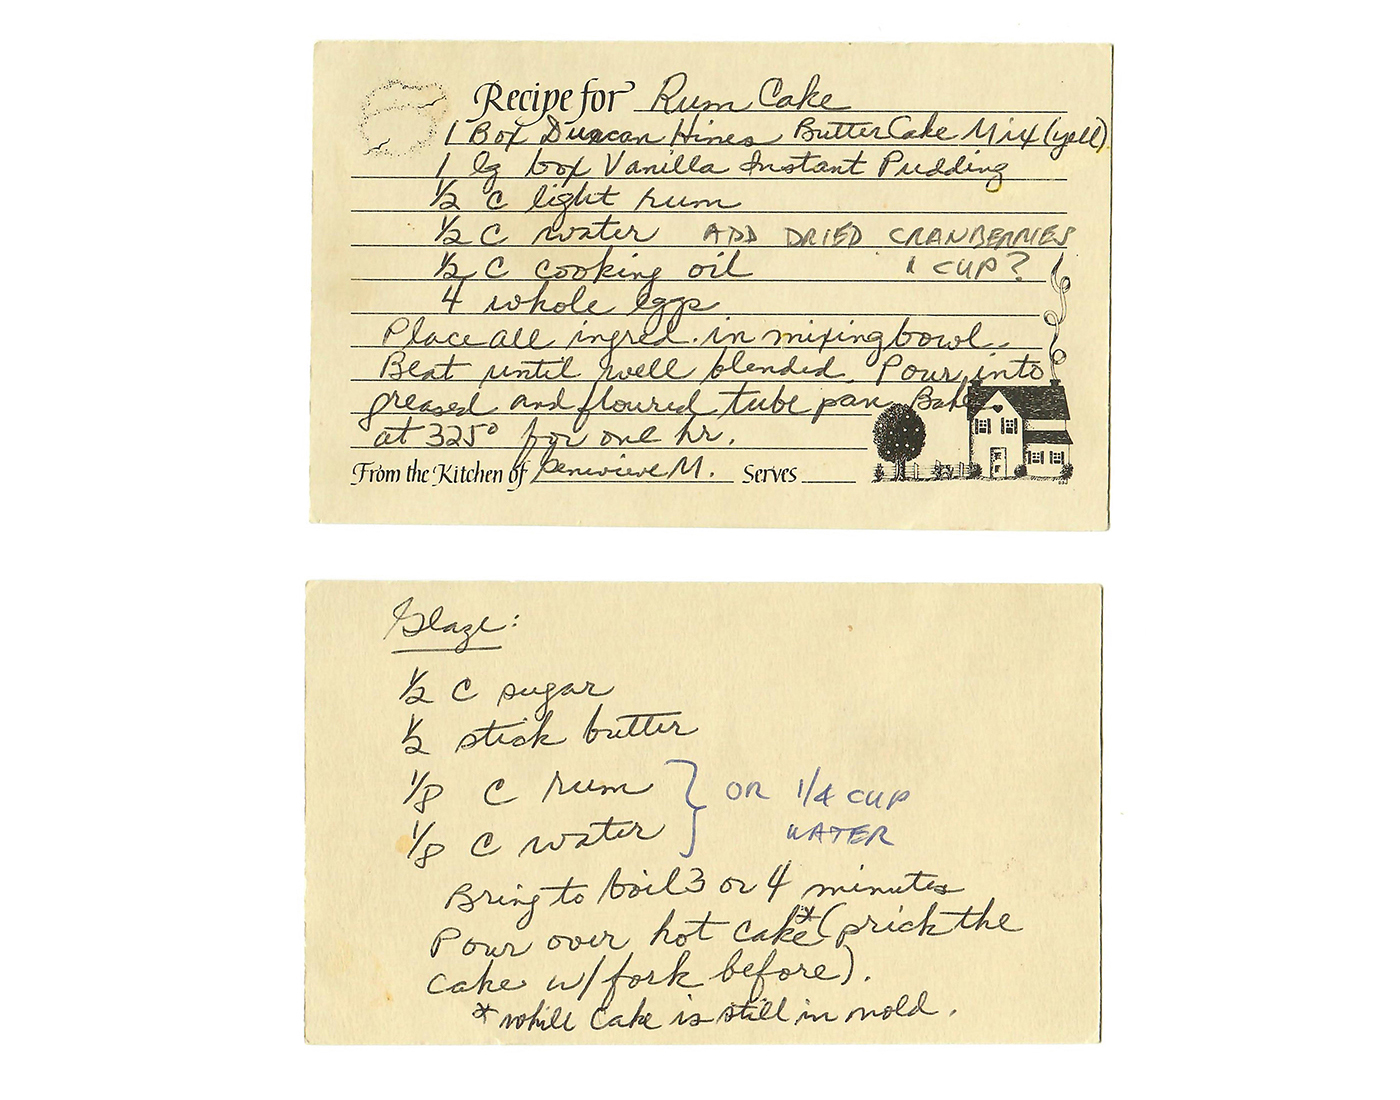 Recipe for Rum Cake
1 Box Duncan Hines Butter Cake Mix (yell)
1 lg box Vanilla Instant Pudding
1/2 C light rum
1/2 C water ADD DRIED CRANBERRIES
1/2 C cooking oil 1 CUP?
4 whole eggs
Place all ingred. in mixing bowl.
Beat until well blended. Pour into
greased and floured tube pan. Bake
at 325° for one hr.
From the Kitchen of Genevieve M. Serves
Glaze:
1/2 C sugar
1/2 stick butter
1/8 C rum } OR 1/4 CUP
1/8 C water } WATER
Bring to boil 3 or 4 minutes
Pour over hot cake* (prick the
cake w/ fork before).
* while Cake is still in mold.